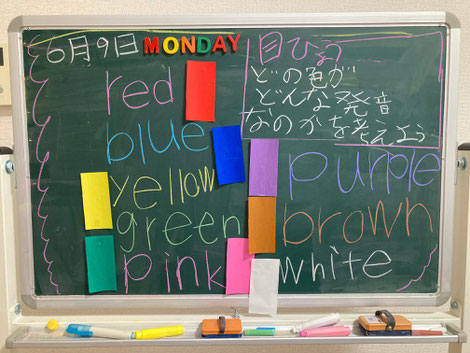 6月9日 MONDAY
目ひょう
どの色が
どんな発音
なのかを考えよう
red
blue
yellow
green
pink
purple
brown
white